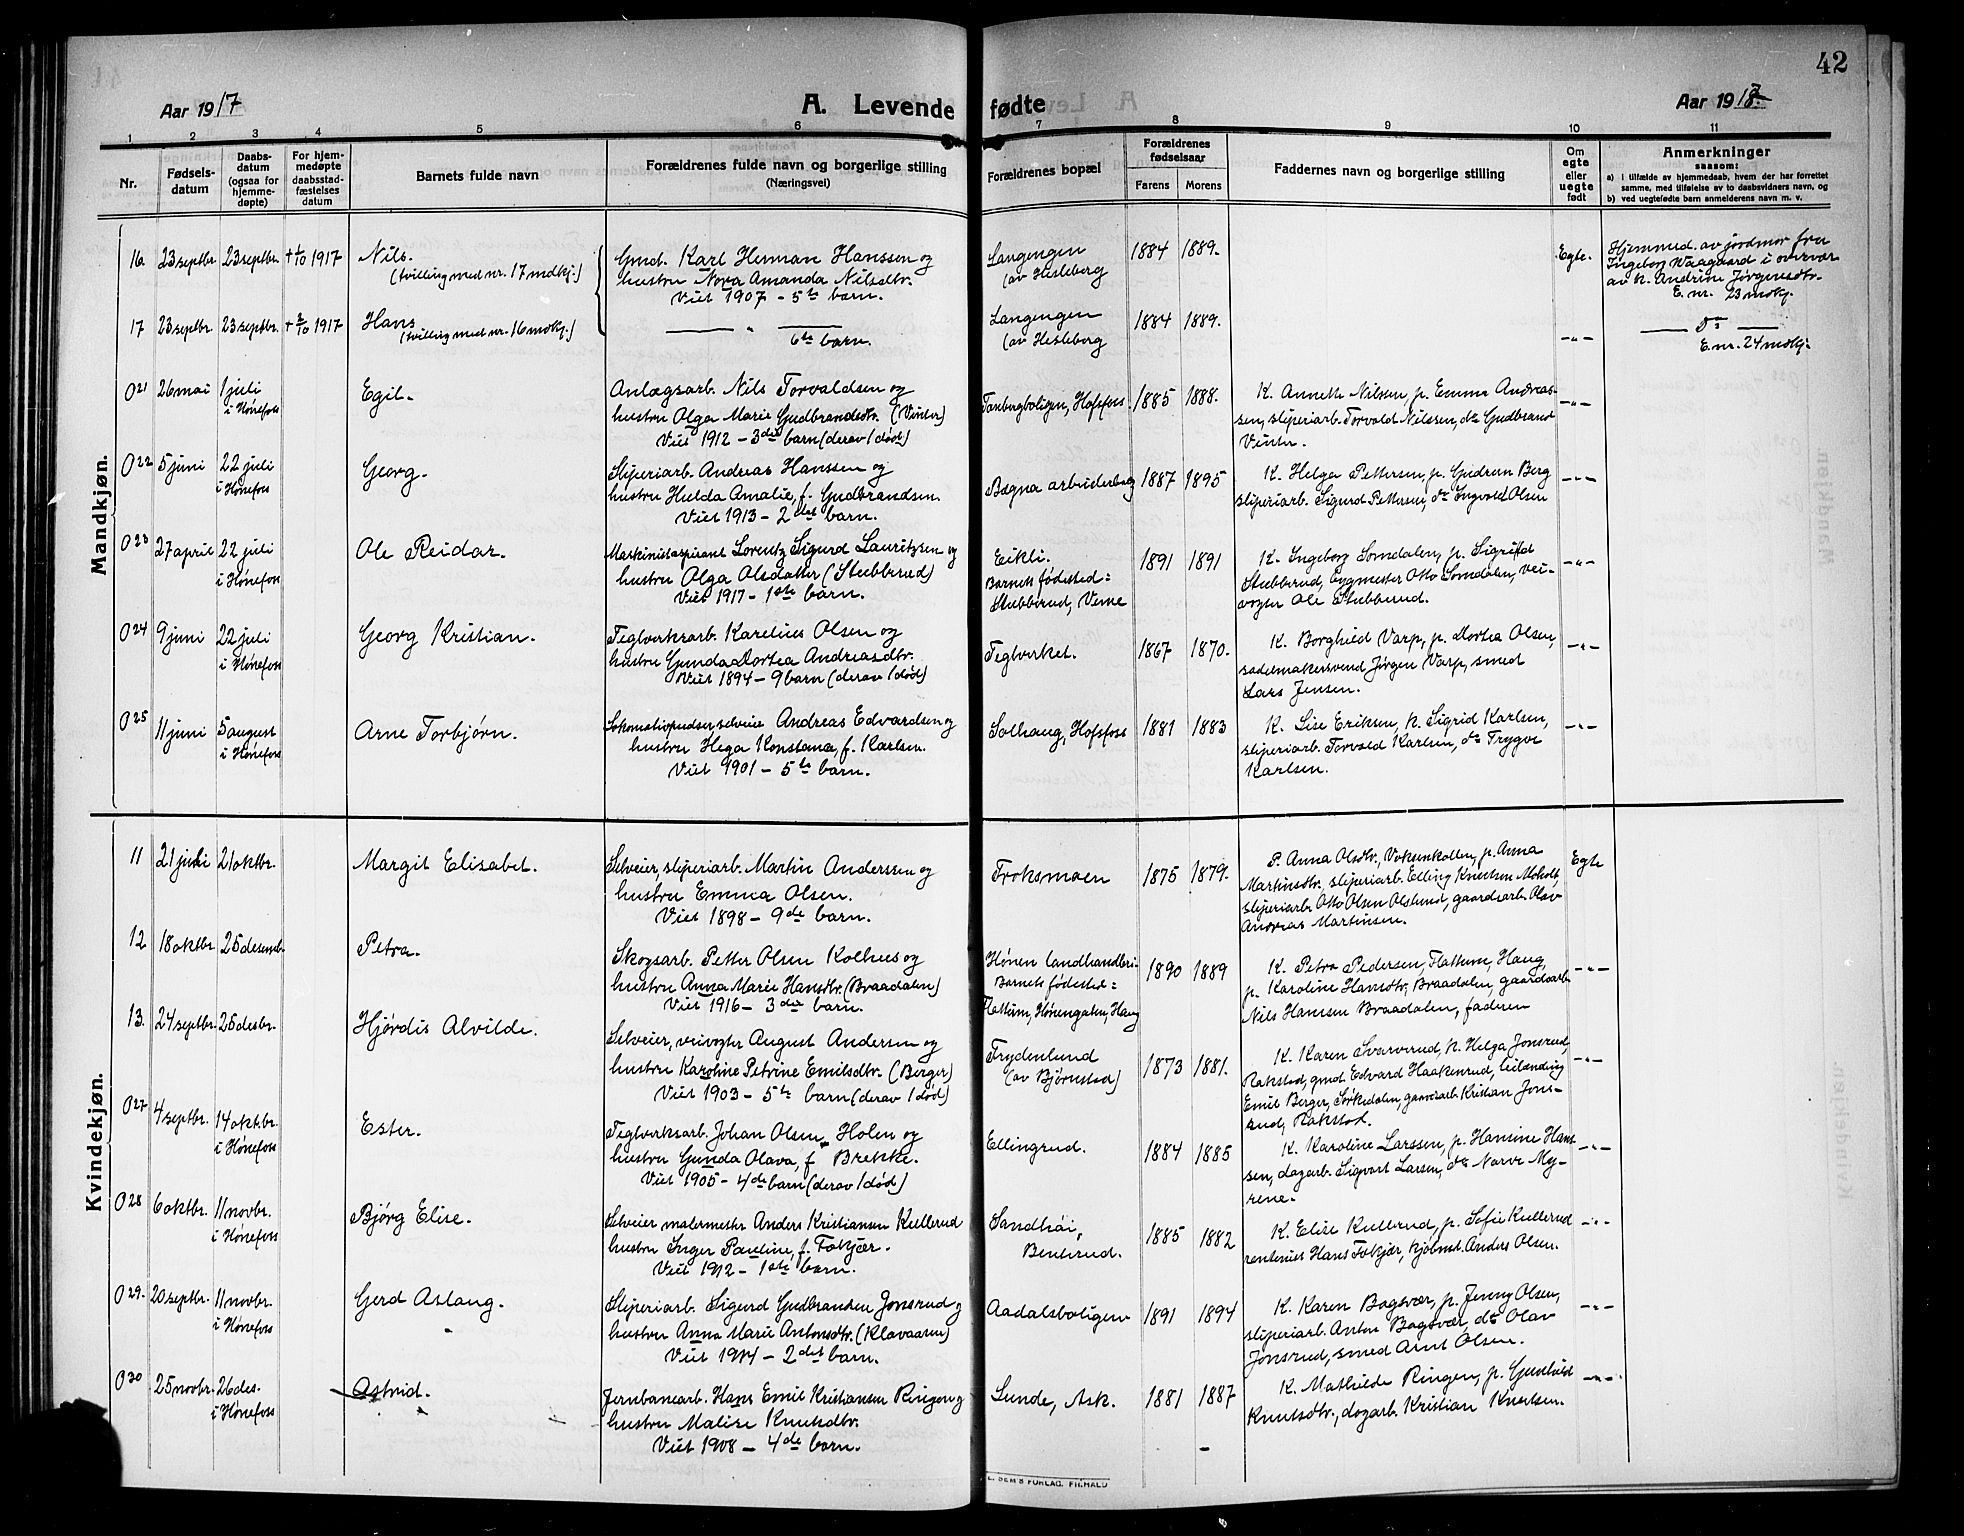 42
Aar 1917
A. Levende fødte
Aar 1917
1 2 3 4 5 6 7 8 9 10 11
Nr.
Fødsels-
datum
Daabs-
datum
(ogsaa for
hjemme-
døpte)
For hjem-
medøpte
daabsstad-
fæstelses
datum
Barnets fulde navn
Forældrenes fulde navn og borgerlige stilling
(Næringsvei)
Forældrenes bopæl
Forældrenes
fødselsaar
Farens Morens
Faddernes navn og borgerlige stilling
Om
egte
eller
uegte
født
Anmerkninger
saasom:
a) i tilfælde av hjemmedaab, hvem der har forrettet
samme, med tilføielse av to daabsvidners navn, og
b) ved uegtefødte barn anmelderens navn m. v.
Mandkjøn.
16 23 septbr. 23 septbr. + 1/10 1917 Nils.
(tvilling med nr. 17 mdkj.)
Gmd. Karl Herman Hanssen og
hustru Nora Amanda Nilsdtr.
Viet 1907 - 5te barn.
Langengen
(av Hesleberg
1884 1889.
Egte.
Hjemmed. av jordmor fru
Ingeborg Waagaard i overvær
av k. Andrine Jørgensdtr.
E. nr. 23 mdkj.
17 23 septbr. 23 septbr. + 2/10 1917 Hans
(tvilling med nr. 16 mdkj.)
— " —
6te barn.
Langengen
(av Hesleberg
1884 1889.
-"-
— do —
E. nr. 24 mdkj.
O 21 26 mai 1 juli
i Hønefoss
Egil.
Anlægsarb. Nils Torvaldsen og
hustru Olga Marie Gudbrandsdtr. (Vinter)
Viet 1912 - 3die barn (derav 1 død)
Tanbergboligen, Hofsfoss.
1885 1888.
K. Annette Nilsen, p. Emma Andreas-
sen, sliperiarb. Torvald Nilssen, do Gudbrand
Vinter.
-"-
O 22 5 juni 22 juli
i Hønefoss
Georg.
Sliperiarb. Andreas Hanssen og
hustru Helda Amalie, f. Gudbrandsen.
Viet 1913 - 2det barn.
Bægna arbeiderbolig
1887 1895
K. Helga Pettersen, p. Gudrun Berg
sliperiarb. Sigurd Pettersen, do Ingvald Olsen
-"-
O 23 27 april 22 juli
i Hønefoss
Ole Reidar.
Maskinistaspirant Lorentz Sigurd Lauritzsen og
hustru Olga Olsdatter (Stubberud)
Viet 1917 - 1ste barn.
Eikli.
Barnets fødested =
Stubberud, Veme
1891 1891
K. Ingeborg Somdalen, p. Sigrid
Stubberud, bygmester Otto Somdalen, vei-
vogter Ole Stubberud.
-"-
O 24 9 juni 22 juli
i Hønefoss
Georg Kristian.
Teglverksarb. Karelius Olsen og
hustru Gunda Dortea Andreasdtr.
Viet 1894 - 9 barn (derav 1 død)
Teglverket.
1867 1870.
K. Borghild Varp, p. Dortea Olsen,
sadelmakersvend Jørgen Varp, smed
Lars Jensen.
-"-
O 25 11 juni 5 august
i Hønefoss
Arne Torbjørn.
Lokomotivpudser, selveier Andreas Edvardsen og
hustru Hega Konstanse, f. Karlsen.
Viet 1901 - 5te barn.
Solhaug, Hofsfoss
1881 1883
K. Lise Eriksen, k. Sigrid Karlsen,
sliperiarb. Torvald Karlsen, do Trygve
Karlsen.
-"-
Kvindekjøn.
11 21 juli 21 oktbr.
Margit Elisabet.
Selveier, sliperiarb. Martin Anderssen og
hustru Emma Olsen.
Viet 1898 - 9de barn.
Froksmoen
1875 1879.
P. Anna Olsdtr., Voksenkollen, p. Anna
Martinsdtr., sliperiarb. Elling Knutsen
sliperiarb. Otto Olsen Oslund, gaardsarb. Olav
Andreas Martinsen.
Egte
12 18 oktbr. 25 desemb.
Petra.
Skogsarb. Petter Olsen Kolhus og
hustru Anna Marie Hansdtr. (Braadalen)
Viet 1916 - 3die barn.
Hønen landhandleri
Barnets fødested =
Flattum, Hønengaten, Haug
1890 1889
K. Petra Pedersen, Flattum, Haug,
p. Karoline Hansdtr., Braadalen, gaardsarb.
Nils Hansen Braadalen, faderen
-"-
13. 24 septbr. 25 desbr.
Hjørdis Alvilde.
Selveier, veivogter August Andersen og
hustru Karoline Petrine Emilsdtr. (Berger)
Viet 1903 - 5te barn (derav 1 død)
Frydenlund
(av Bjørnstad)
1873 1881.
K. Karen Svarverud, k. Helga Jonsrud,
Rakstad, gmd. Edvard Haakenrud, leilænding
Emil Berger, Sørkedalen, gaardsarb. Kristian Jons-
rud, Rakstad.
-"-
O 27 4 septbr. 14 oktbr.
i Hønefoss
Ester.
Teglverksarb. Johan Olsen Holen og
hustru Gunda Olava, f. Brekke.
Viet 1905 - 4de barn (derav 1 død)
Ellingrud.
1884 1885
K. Karoline Larssen, p. Hansine Hans-
sen, dagarb. Sigvart Larsen, do Narve My-
rene.
-"-
O 28 6 oktbr. 11 novbr.
i Hønefoss
Bjørg Elise.
Selveier malermester Anders Kristiansen Kullerud
hustru Inger Pauline, f. Fokjær.
Viet 1912 - 1ste barn.
Sandhøi,
Benterud.
1885 1882
K. Elise Kullerud, p. Sofie Kullerud
rentenist Hans Fokjær, kjøbmd. Anders Olsen.
-"-
O 29. 20 septbr. 11 novbr.
i Hønefoss
Gerd Aslaug.
Sliperiarb. Sigurd Gudbransen Jonsrud og
hustru Anna Marie Antonsdtr. (Klavaasen)
Viet 1914 - 2det barn.
Aadalsboligene
1891 1894
K. Karen Bagsvær, p. Jenny Olsen,
sliperiarb. Anton Bagsvær, do Olav
Jonsrud, smed Arnt Olsen.
-"-
O 30 25 novbr. 26 des.
i Hønefoss
Astrid.
Jernbanearb. Hans Emil Kristiansen Ringen og
hustru Malise Knutsdtr.
Viet 1908 - 4de barn.
Lunde, Ask.
1881 1887
K. Mathilde Ringen, p. Gunhild
Knutsdtr., dagarb. Kristian Knutsen.
-"-
SEM'S FORLAG, FR.HALD